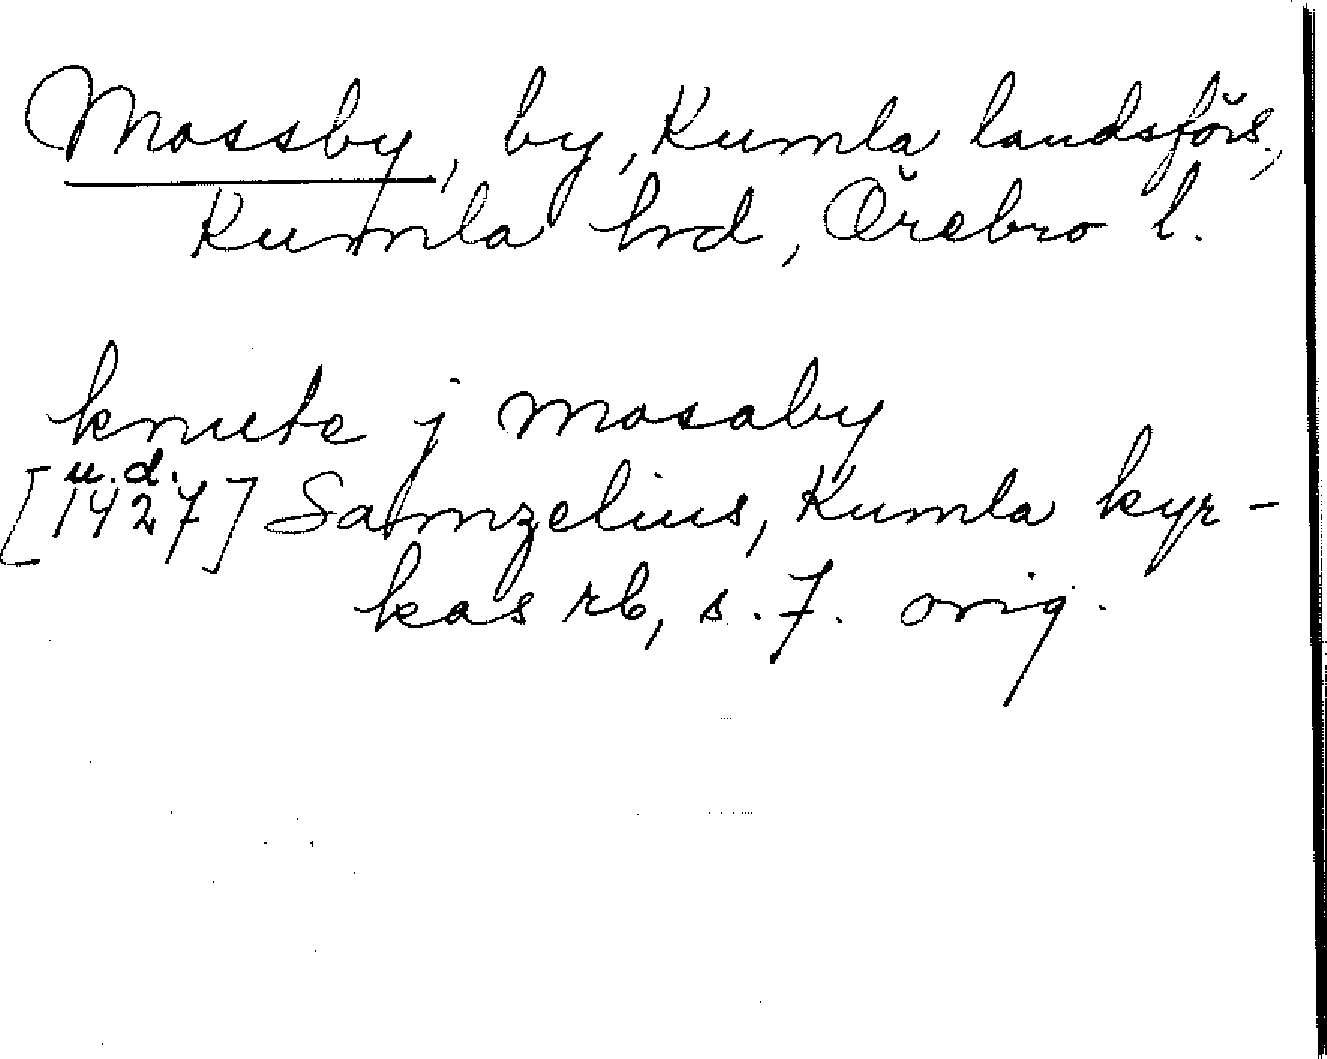 Mossby, by, Kumla landsförs.,
Kumla hrd, Örebro l.
knute j mosaby
u.d.
[1427] Samzelius, Kumla kyr-
kas rb, s. 7. orig.